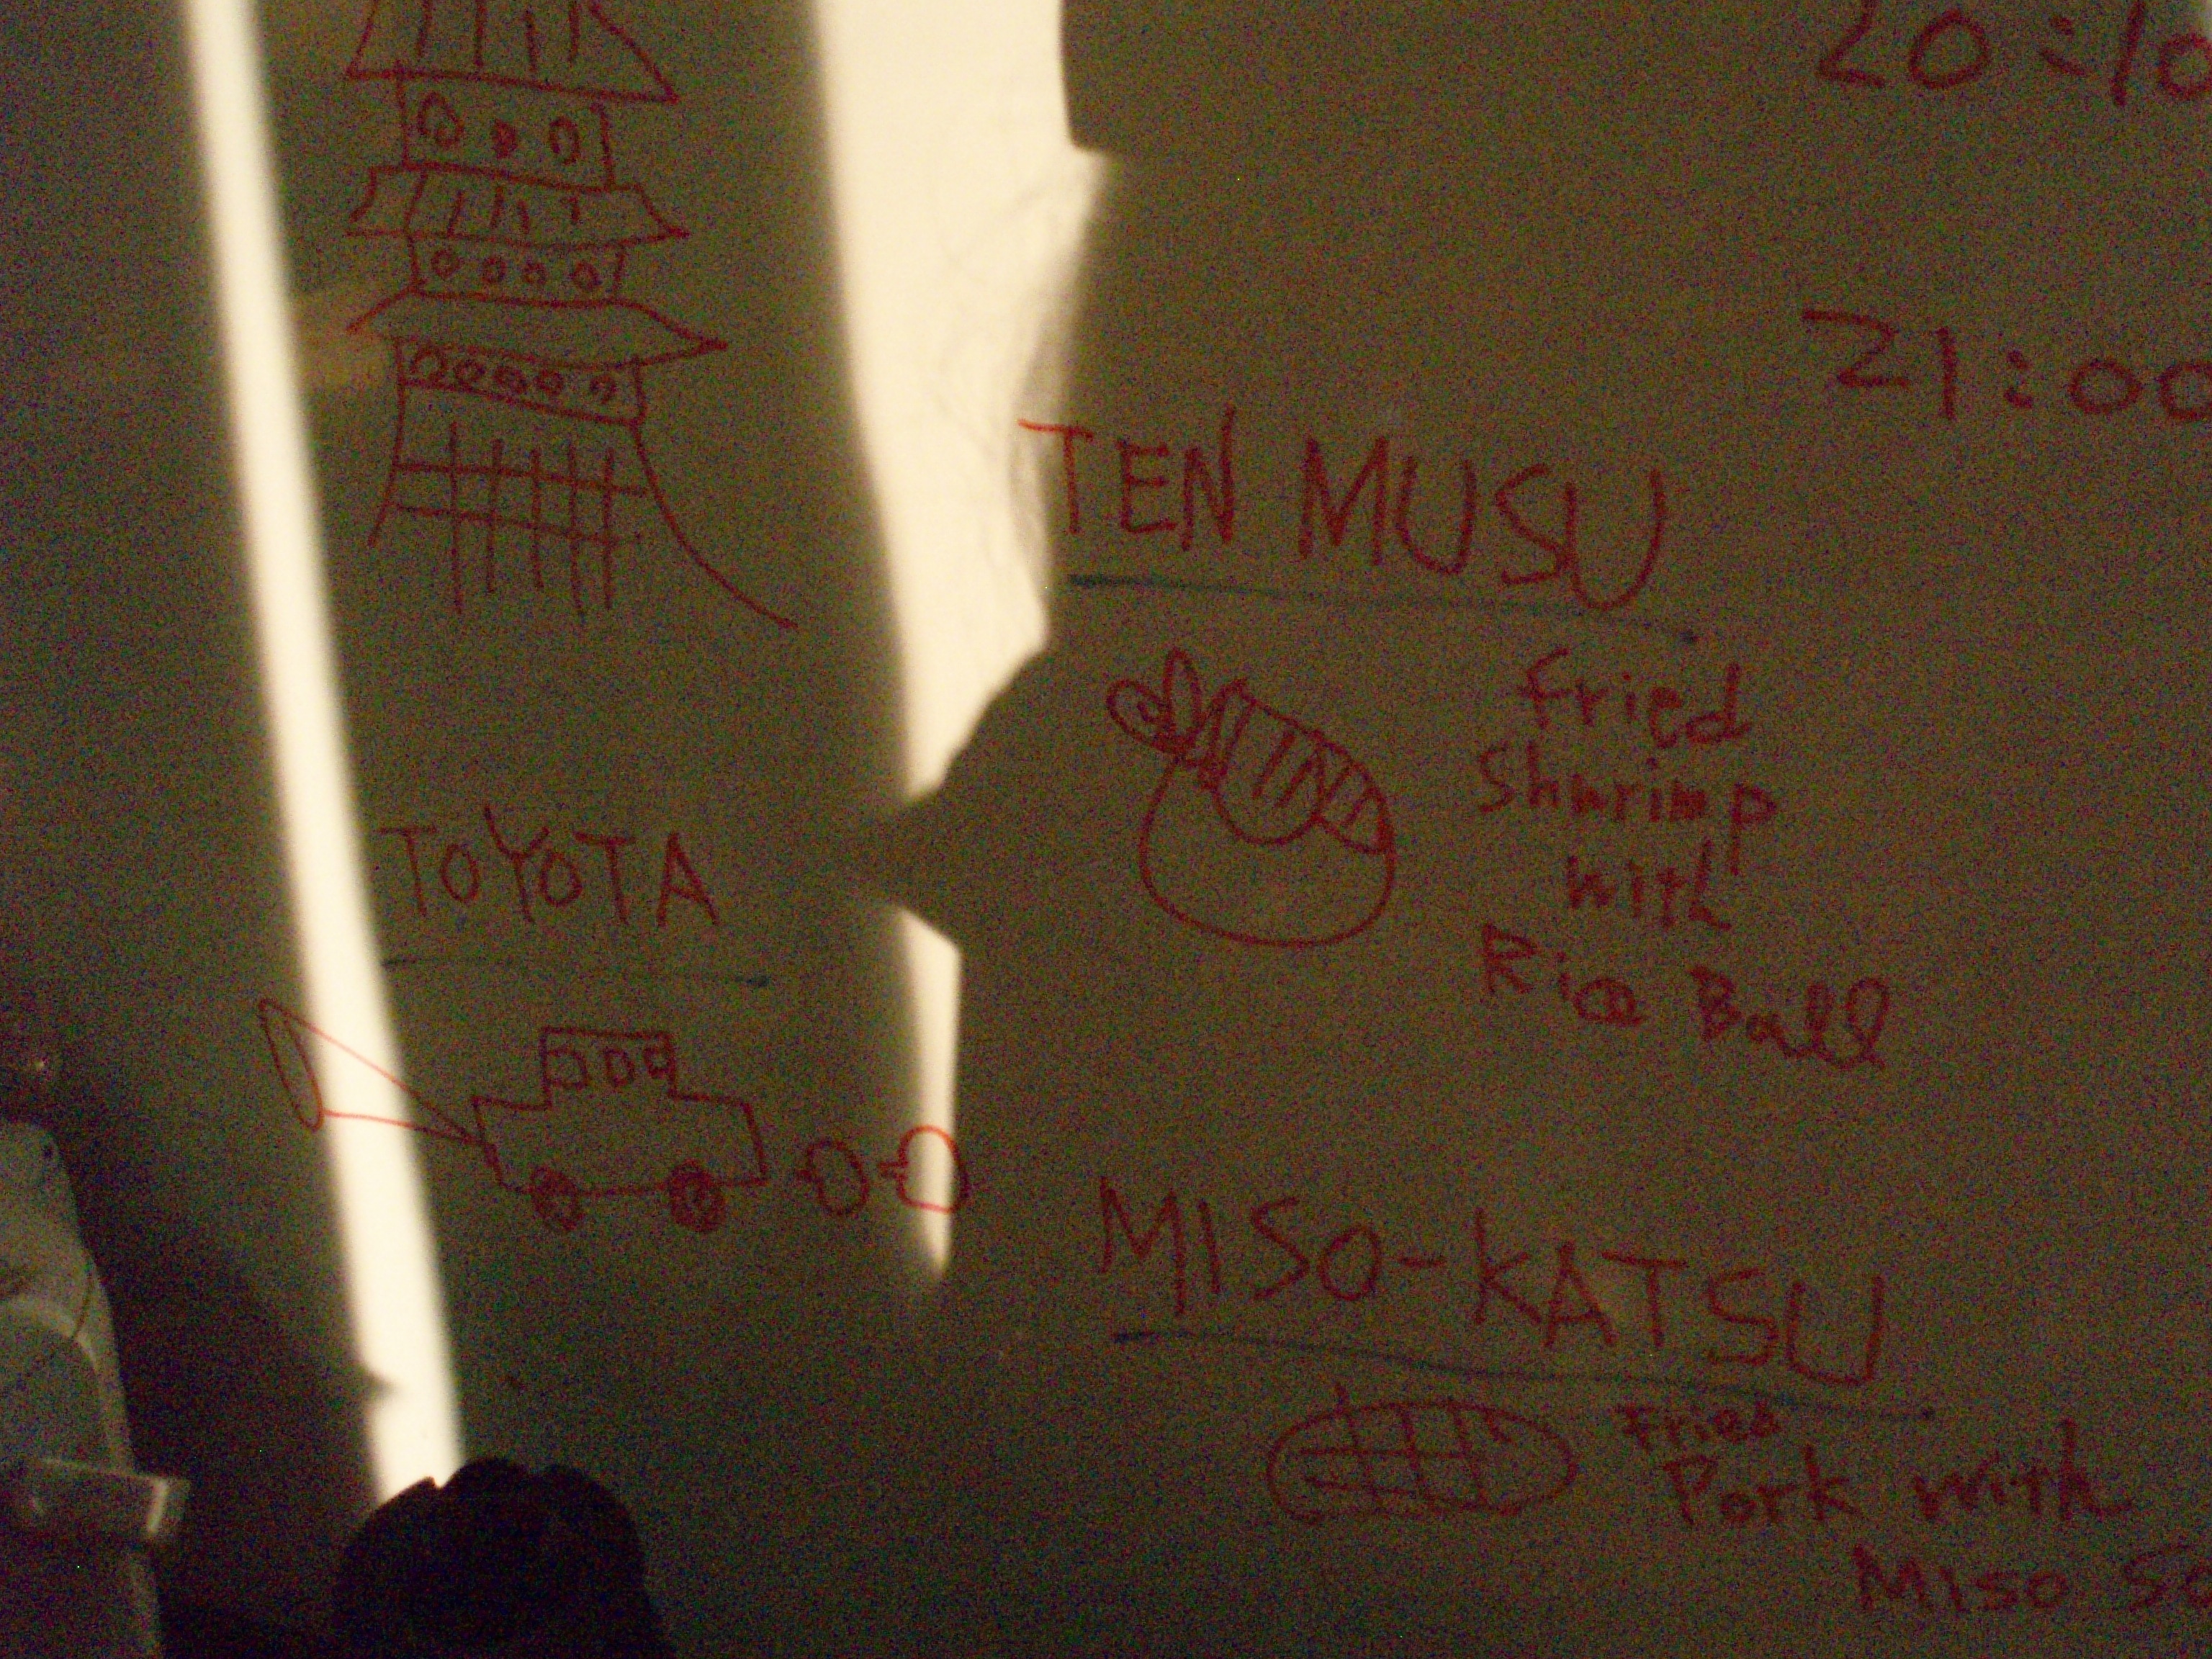 20:10
21:00
TEN MUSU
Fried
Shurimp
with
Rice Ball
TOYOTA
MISO-KATSU
Fried
Pork with
MISO